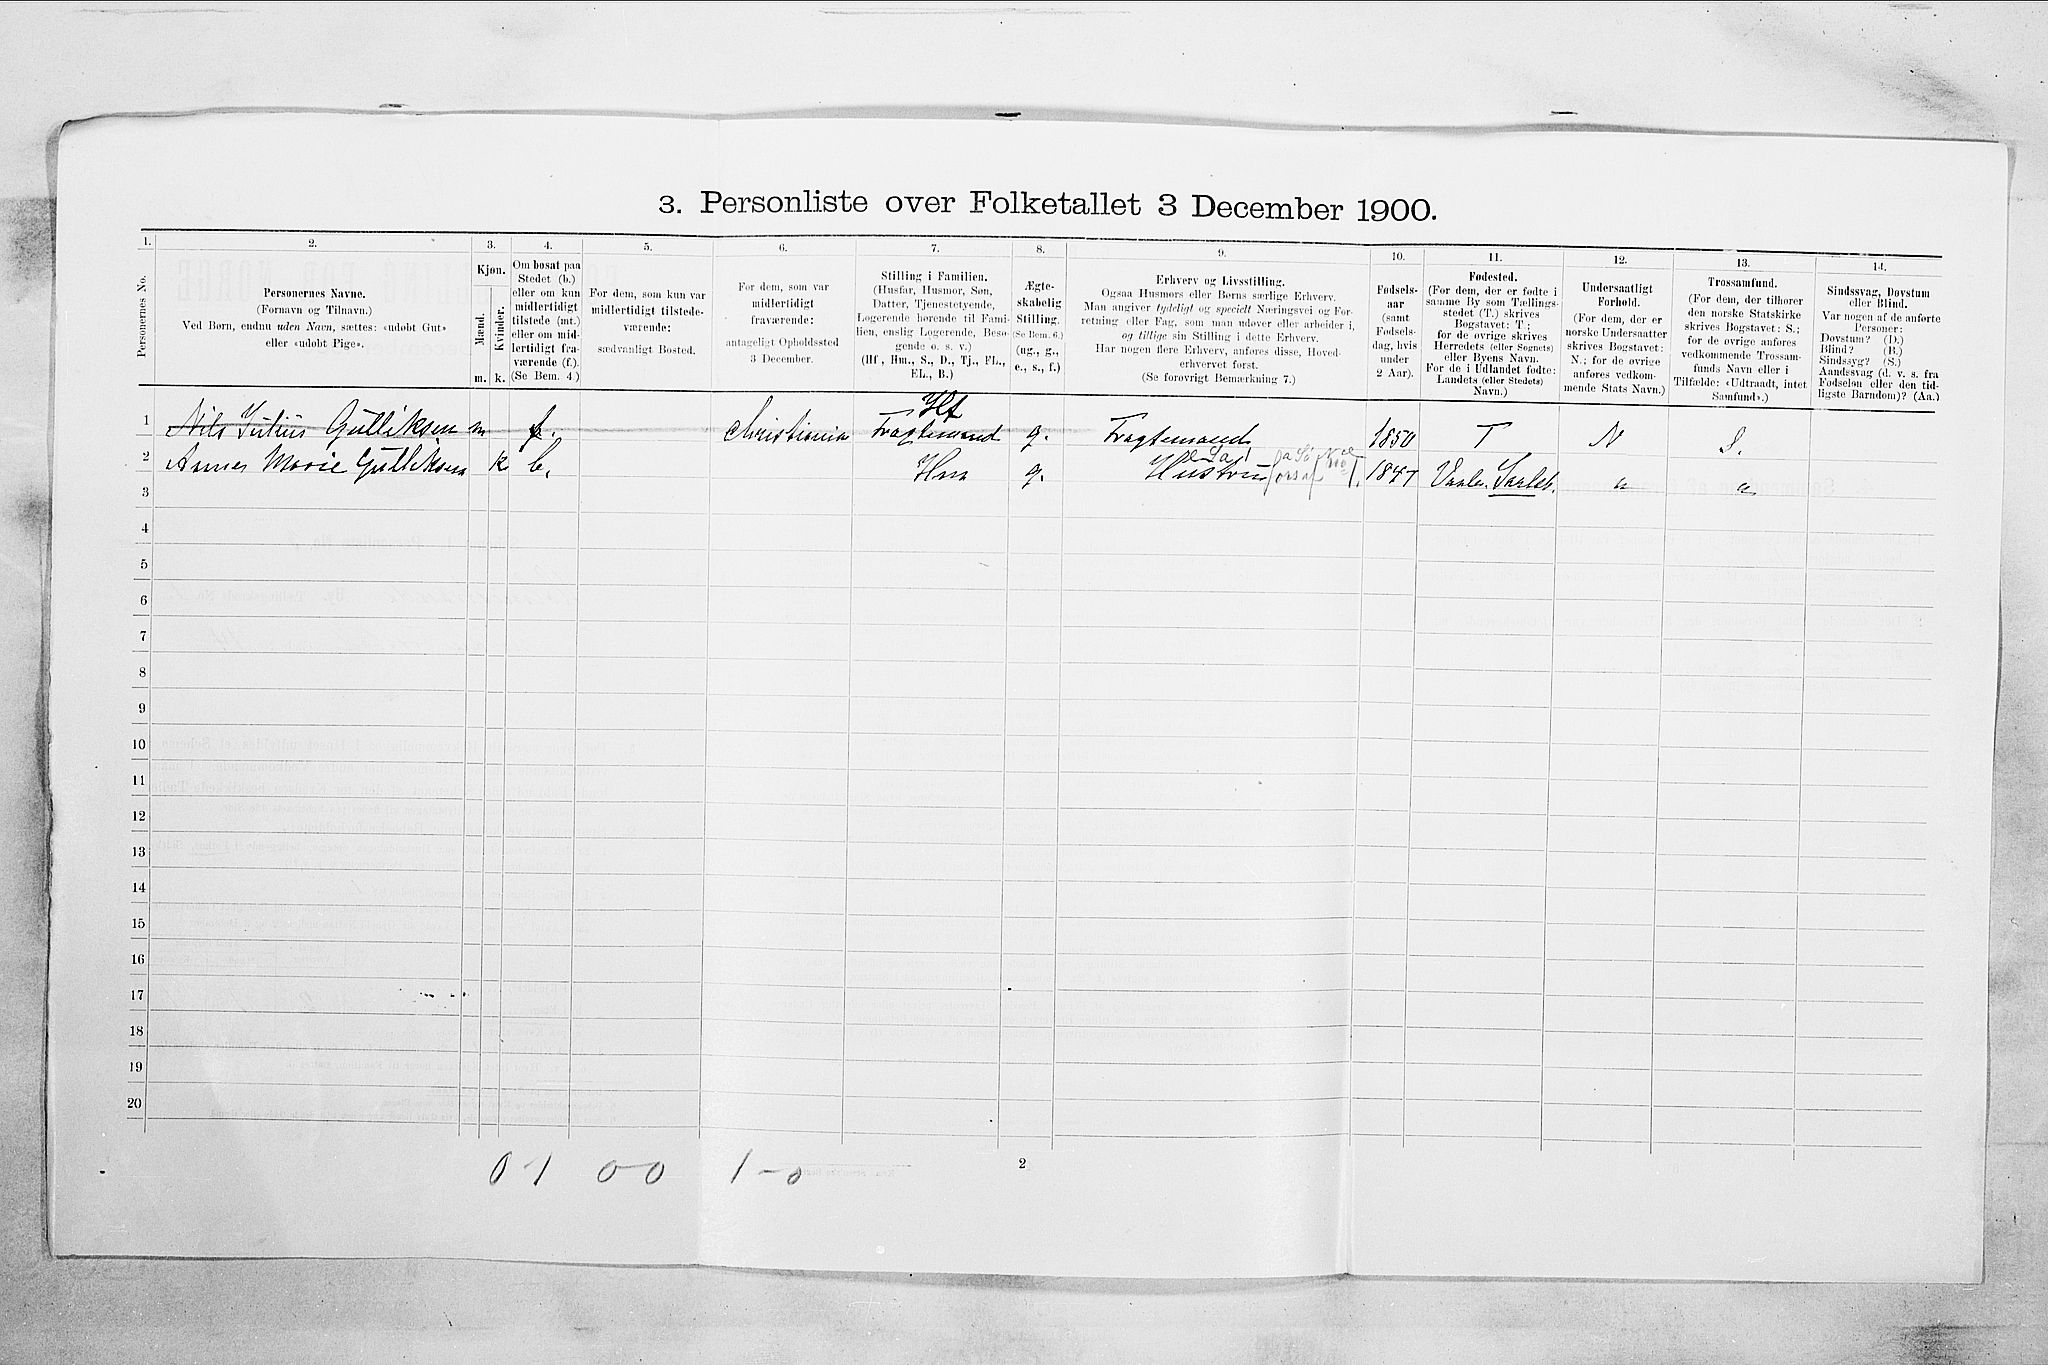 3. Personliste over Folketallet 3 December 1900.
1. 2. 3. 4. 5. 6. 7. 8. 9. 10. 11. 12. 13. 14.
Personernes No.
Personernes Navne.
(Fornavn og Tilnavn.)
Ved Børn, endnu uden Navn, sættes: «udøbt Gut»
eller «udøbt Pige».
Kjøn.
Mænd.
Kvinder.
m. k.
Om bosat paa
Stedet (b.)
eller om kun
midlertidigt
tilstede (mt.)
eller om mid-
lertidigt fra-
værende (f.).
(Se Bem. 4.)
For dem, som kun var
midlertidigt tilstede-
værende:
sædvanligt Bosted.
For dem, som var
midlertidigt
fraværende:
antageligt Opholdssted
3 December.
Stilling i Familien.
(Husfar, Husmor, Søn,
Datter, Tjenestetyende,
Logerende hørende til Fami-
lien, enslig Logerende, Besø-
gende o. s. v.)
(Hf, Hm., S., D., Tj., FL.,
EL., B.)
Ægte-
skabelig
Stilling.
(Se Bem. 6.)
(ug., g.,
e., s., f.)
Erhverv og Livsstilling.
Ogsaa Husmors eller Børns særlige Erhverv.
Man angiver tydeligt og specielt Næringsvei og For-
retning eller Fag, som man udøver eller arbeider i,
og tillige sin Stilling i dette Erhverv.
Har nogen flere Erhverv, anføres disse, Hoved-
erhvervet først.
(Se forøvrigt Bemærkning 7.)
Fødsels-
aar
(samt
Fødsels-
dag, hvis
under
2 Aar).
Fødested.
(For dem, der er fødte i
samme By som Tællings-
stedet (T.) skrives
Bogstavet: T;
for de øvrige skrives
Herredets (eller Sognets)
eller Byens Navn.
For de i Udlandet fødte:
Landets (eller Stedets)
Navn.)
Undersaatligt
Forhold.
(For dem, der er
norske Undersaatter
skrives Bogstavet:
N.; for de øvrige
anføres vedkom-
mende Stats Navn.)
Trossamfund.
(For dem, der tilhører
den norske Statskirke
skrives Bogstavet: S.;
for de øvrige anføres
vedkommende Trossam-
funds Navn eller i
Tilfælde: «Udtraadt, intet
Samfund».)
Sindssvag, Døvstum
eller Blind.
Var nogen af de anførte
Personer:
Døvstum? (D.)
Blind? (B.)
Sindssyg? (S.)
Aandssvag (d. v. s. fra
Fødselen eller den tid-
ligste Barndom)? (Aa.)
Hf
1 Nils Julius Gulliksen m f. Christiania Fragtemand g. Fragtemand 1850 T N S.
2 Annes Marie Gulliksen k b. Hm g. Hustru 1847 Vaale. Jarlsb. " "
3
4
5
6
7
8
9
10
11
12
13
14
15
16
17
18
19
20
0-1 0-0 1-0
2